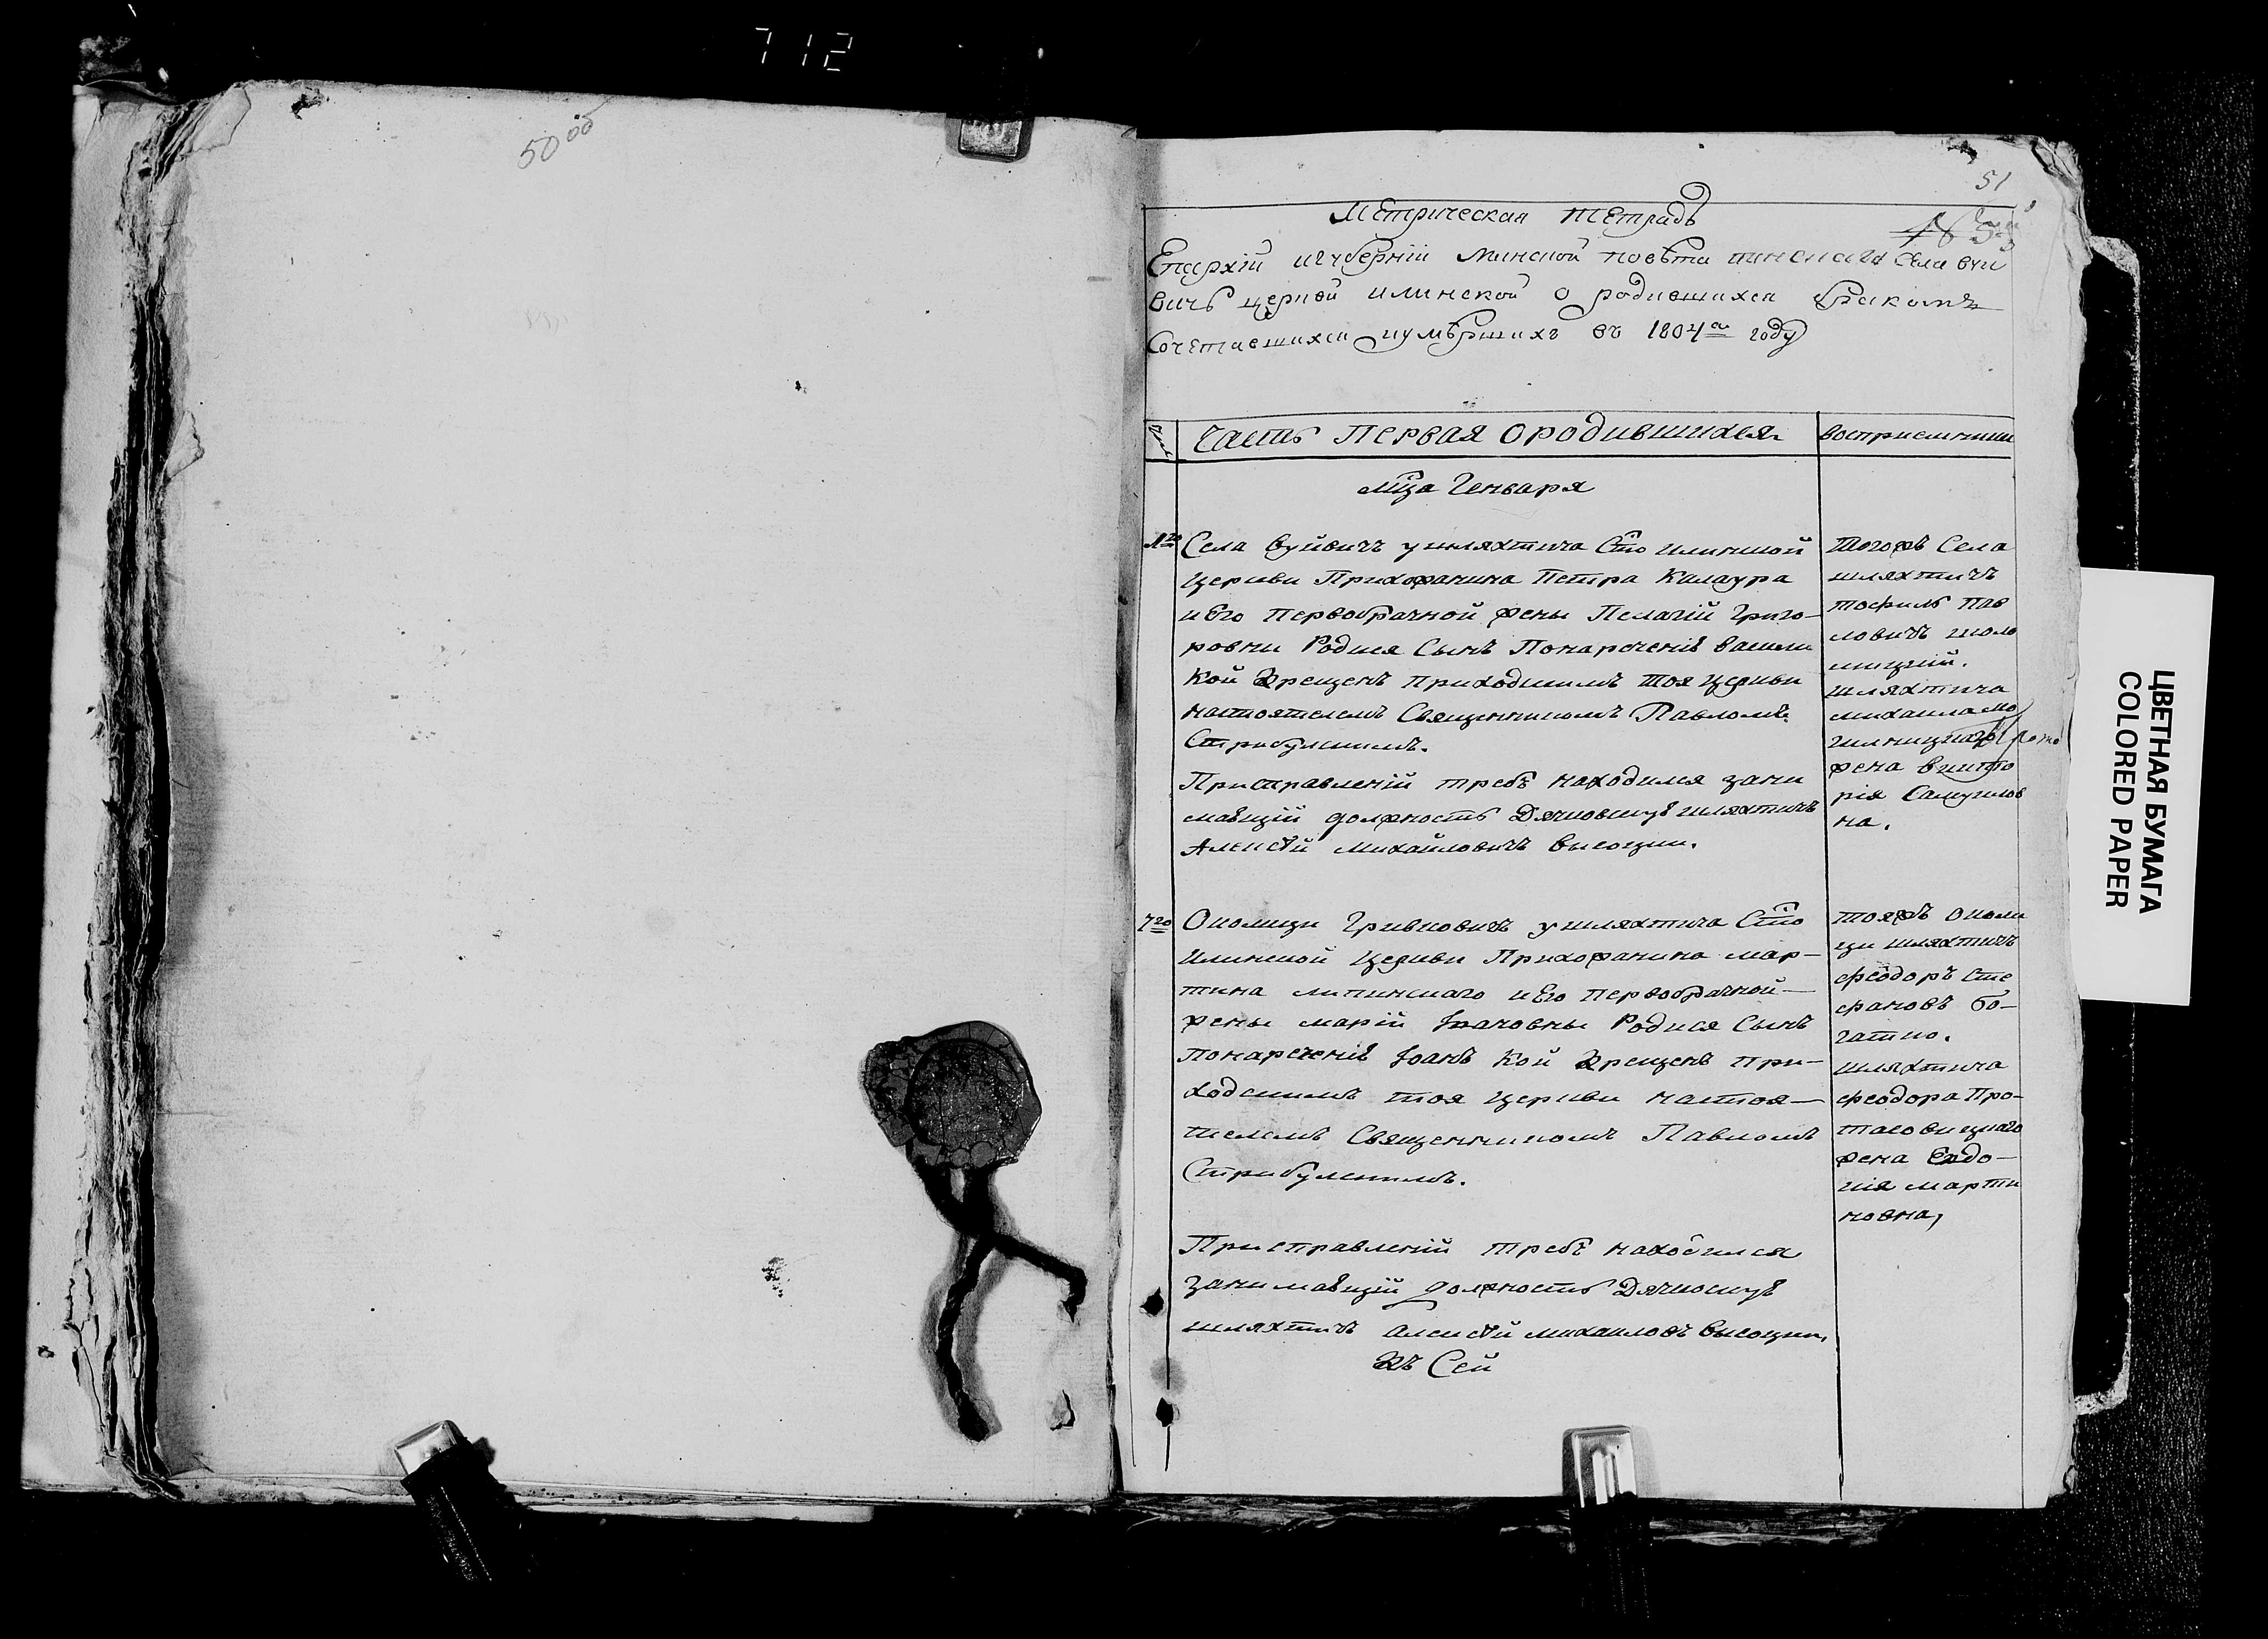 712
50 00
51
Метрическая тетрадь
Епархіи игуберніи Минской повѣта пинскаго села вуй
вичъ церкви илинской о родившихся бракомъ
сочетавшихся иумѣршихъ въ 1804а году
Часть первая ородившихся
восприемники
мца Генваря
Села вуйвичъ ушляхтича Сто илинской
церкви Прихожанина Петра Калаура
иЕго первобрачной жены Пелагіи Григо-
ровны Родися Сынъ Понареченіѣ васили
Кой Крещенъ приходскимъ тоя церкви
настоятелемъ Священникомъ Павломъ
Стрибулскимъ.
Присправленіи требъ находился зани
мавщій должность Дячковскую шляхтичъ
Алексѣй Михайловичъ высоцки.
Тогожъ Села
шляхтичъ
тофиль пав
ловичъ
шляхтича
михаила
жена викто
рія Самуилов
на.
7го
Околици Гривковичъ ушляхтича Сто
Илинской Церкви Прихожанина мар-
тина липинскаго иЕго первобрачной-
жены маріи Іоановны Родися Сынъ
понареченіѣ Іоанъ Кой Крещенъ при-
ходскимъ тоя церкви настоя-
телемъ Священникомъ Павломъ
Стрибулскимъ.
Присправленіи требъ находился
занимавщій должность Дячковскую
шляхтичъ алексѣй михаиловъ высоцки,
Къ Сей
тояжъ околи
ци шляхтичъ
феодоръ сте
фановъ бо-
гатко.
шляхтича
феодора Про-
тасовицкаго
жена Евдо-
кія марти
новна,
ЦВЕТНАЯ БУМАГА
COLORED PAPER